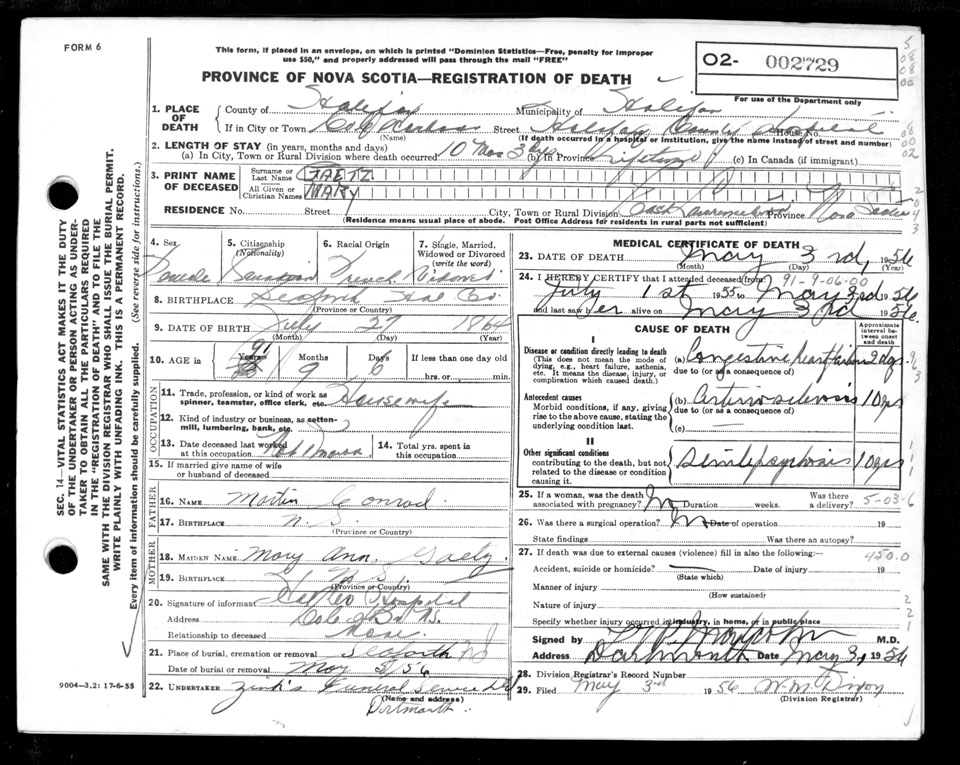 FORM 6
This form, if placed in an envelope, on which is printed "Dominion Statistics—Free, penalty for improper
use $50," and properly addressed will pass through the mail "FREE"
PROVINCE OF NOVA SCOTIA—REGISTRATION OF DEATH
02- 002729
For use of the Department only
1. PLACE OF DEATH
County of Halifax Municipality of Halifax
If in City or Town Cole Harbour Street Halifax County Hospital House No.
(Name) (If death occurred in a hospital or institution, give the name instead of street and number)
2. LENGTH OF STAY (in years, months and days)
(a) In City, Town or Rural Division where death occurred 10 Mos 3 dys (b) In Province Lifetime (c) In Canada (if immigrant)
3. PRINT NAME OF DECEASED
Surname or Last Name GAETZ
All Given or Christian Names MARY
RESIDENCE No. Street City, Town or Rural Division East Lawrencetown Province Nova Scotia
(Residence means usual place of abode. Post Office Address for residents in rural parts not sufficient)
4. Sex Female
5. Citizenship (Nationality) Canadian
6. Racial Origin French
7. Single, Married, Widowed or Divorced (write the word) Widowed
8. BIRTHPLACE Seaforth Hal Co.
(Province or Country)
9. DATE OF BIRTH July 27 1864
(Month) (Day) (Year)
10. AGE in Years Months Days If less than one day old
91 9 6 hrs. or min.
OCCUPATION
11. Trade, profession, or kind of work as spinner, teamster, office clerk, etc. Housewife
12. Kind of industry or business, as cotton-mill, lumbering, bank, etc.
13. Date deceased last worked at this occupation Not Known
14. Total yrs. spent in this occupation
15. If married give name of wife or husband of deceased
FATHER
16. NAME Martin Conrod
17. BIRTHPLACE N.S.
(Province or Country)
MOTHER
18. MAIDEN NAME Mary Ann Gaetz
19. BIRTHPLACE N.S.
(Province or Country)
20. Signature of informant Hal Co Hospital
Address Cole Hbr NS.
Relationship to deceased None
21. Place of burial, cremation or removal Seaforth NS
Date of burial or removal May 5/56
22. UNDERTAKER Zink's Funeral Service Ltd
(Name and address)
Dartmouth
MEDICAL CERTIFICATE OF DEATH
23. DATE OF DEATH May 3rd, 1956
(Month) (Day) (Year)
24. I HEREBY CERTIFY that I attended deceased from: 91-9-06-00
July 1st 1955 to May 3rd 1956
and last saw her alive on May 3rd 1956.
CAUSE OF DEATH
Approximate interval between onset and death
I
Disease or condition directly leading to death
(This does not mean the mode of dying, e.g., heart failure, asthenia, etc. It means the disease, injury, or complication which caused death.)
(a) Congestive heart failure 2 dys
due to (or as a consequence of)
Antecedent causes
Morbid conditions, if any, giving rise to the above cause, stating the underlying condition last.
(b) Arteriosclerosis 10 yrs
due to (or as a consequence of)
(c) —
II
Other significant conditions
contributing to the death, but not related to the disease or condition causing it.
Senile psychosis 10 yrs
25. If a woman, was the death associated with pregnancy? No Duration weeks. Was there a delivery? 5-03-6
26. Was there a surgical operation? No Date of operation 19
State findings Was there an autopsy?
27. If death was due to external causes (violence) fill in also the following:— 450.0
Accident, suicide or homicide? Date of injury 19
(State which)
Manner of injury
(How sustained)
Nature of injury
Specify whether injury occurred in industry, in home, or in public place
Signed by M.D.
Address Dartmouth Date May 3, 1956
28. Division Registrar's Record Number
29. Filed May 3rd 1956 W.M. Dixon
(Division Registrar)
SEC. 14—VITAL STATISTICS ACT MAKES IT THE DUTY
OF THE UNDERTAKER OR PERSON ACTING AS UNDER-
TAKER TO OBTAIN ALL THE PARTICULARS REQUIRED
IN THE "REGISTRATION OF DEATH" AND TO FILE THE
SAME WITH THE DIVISION REGISTRAR WHO SHALL ISSUE THE BURIAL PERMIT.
WRITE PLAINLY WITH UNFADING INK. THIS IS A PERMANENT RECORD.
Every item of information should be carefully supplied. (See reverse side for instructions.)
9004—3.2: 17-6-55